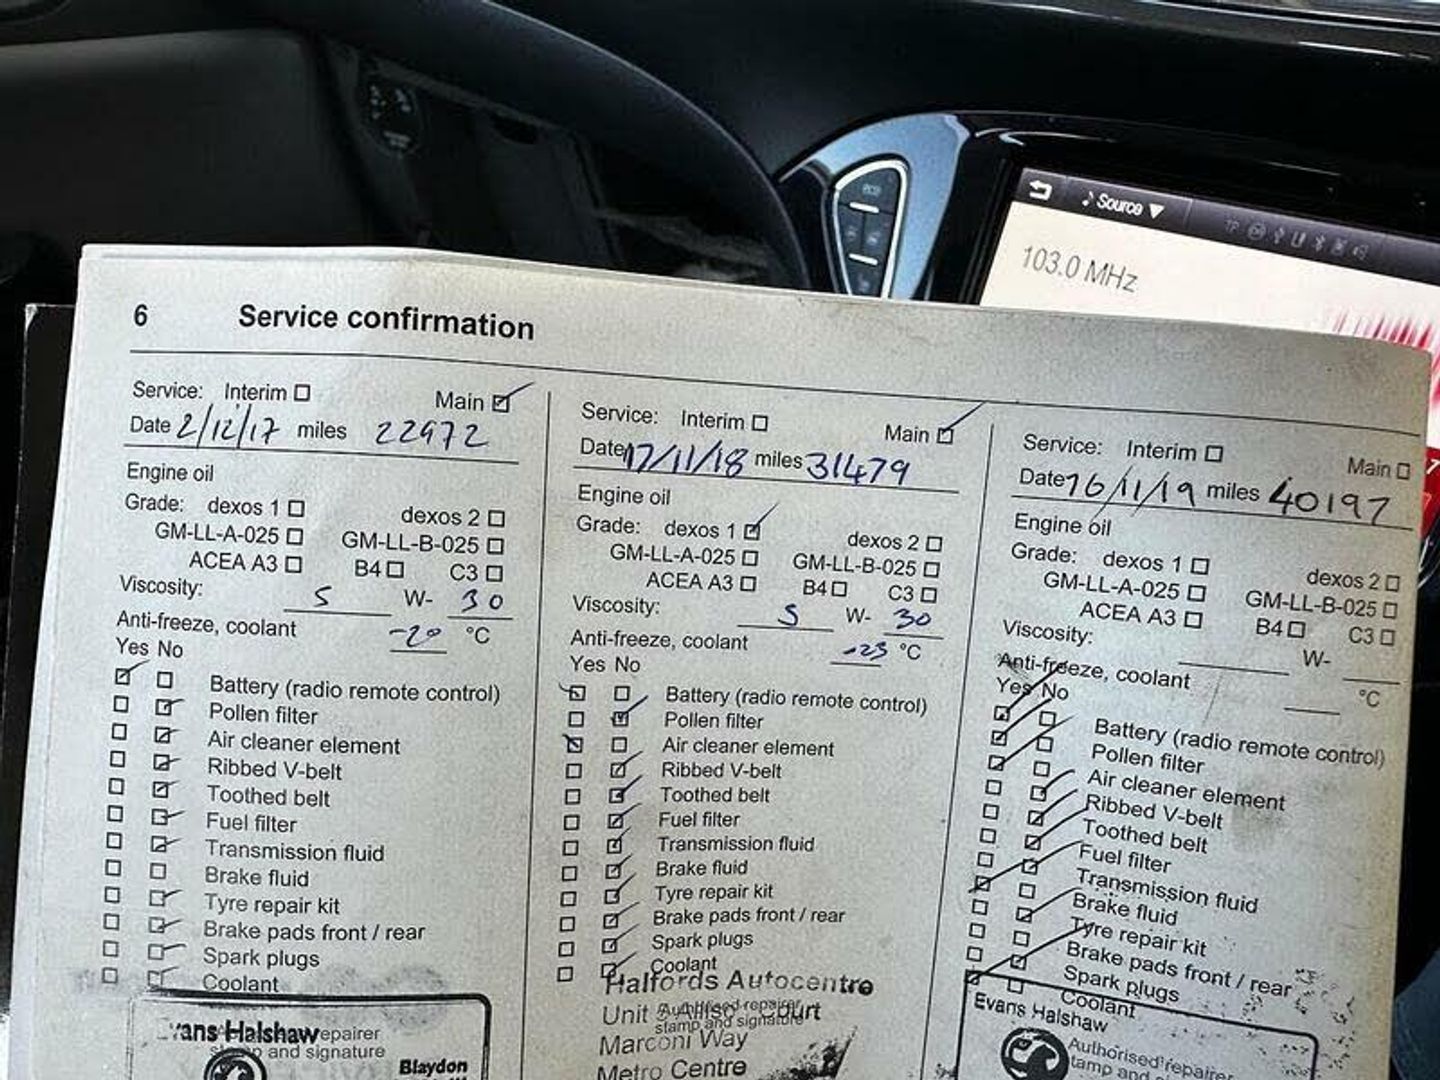 Source ▼
103.0 MHz
6 Service confirmation
Service: Interim ☐ Main ☑
Date 2/12/17 miles 22972
Engine oil
Grade: dexos 1 ☐ dexos 2 ☐
GM-LL-A-025 ☐ GM-LL-B-025 ☐
ACEA A3 ☐ B4 ☐ C3 ☐
Viscosity: 5 W- 30
Anti-freeze, coolant -20 °C
Yes No
Battery (radio remote control)
Pollen filter
Air cleaner element
Ribbed V-belt
Toothed belt
Fuel filter
Transmission fluid
Brake fluid
Tyre repair kit
Brake pads front / rear
Spark plugs
Coolant
Evans Halshaw
repairer
and signature
Blaydon
Service: Interim ☐ Main ☑
Date 17/11/18 miles 31479
Engine oil
Grade: dexos 1 ☑ dexos 2 ☐
GM-LL-A-025 ☐ GM-LL-B-025 ☐
ACEA A3 ☐ B4 ☐ C3 ☐
Viscosity: 5 W- 30
Anti-freeze, coolant -23 °C
Yes No
Battery (radio remote control)
Pollen filter
Air cleaner element
Ribbed V-belt
Toothed belt
Fuel filter
Transmission fluid
Brake fluid
Tyre repair kit
Brake pads front / rear
Spark plugs
Coolant
Halfords Autocentre
Authorised repairer
Unit Court
stamp and signature
Marconi Way
Metro Centre
Service: Interim ☐ Main ☐
Date 16/11/19 miles 40197
Engine oil
Grade: dexos 1 ☐ dexos 2 ☐
GM-LL-A-025 ☐ GM-LL-B-025 ☐
ACEA A3 ☐ B4 ☐ C3 ☐
Viscosity: W-
Anti-freeze, coolant °C
Yes No
Battery (radio remote control)
Pollen filter
Air cleaner element
Ribbed V-belt
Toothed belt
Fuel filter
Transmission fluid
Brake fluid
Tyre repair kit
Brake pads front / rear
Spark plugs
Coolant
Evans Halshaw
Authorised repairer
tamp and